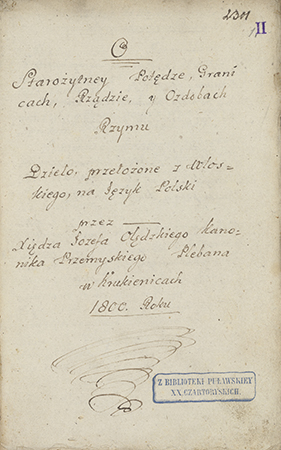 2301
II
O
Starożytney Potędze, Grani
cach, Rządzie, y Ozdobach
Rzymu
Dzieło, przełożone z Włos-
kiego, na Język Polski
przez
Xiędza Józefa Olędzkiego Kano-
nika Przemyskiego Plebana
w Krukienicach
1800. Roku
Z BIBLIOTEKI PUŁAWSKIEY
XX. CZARTORYSKICH.